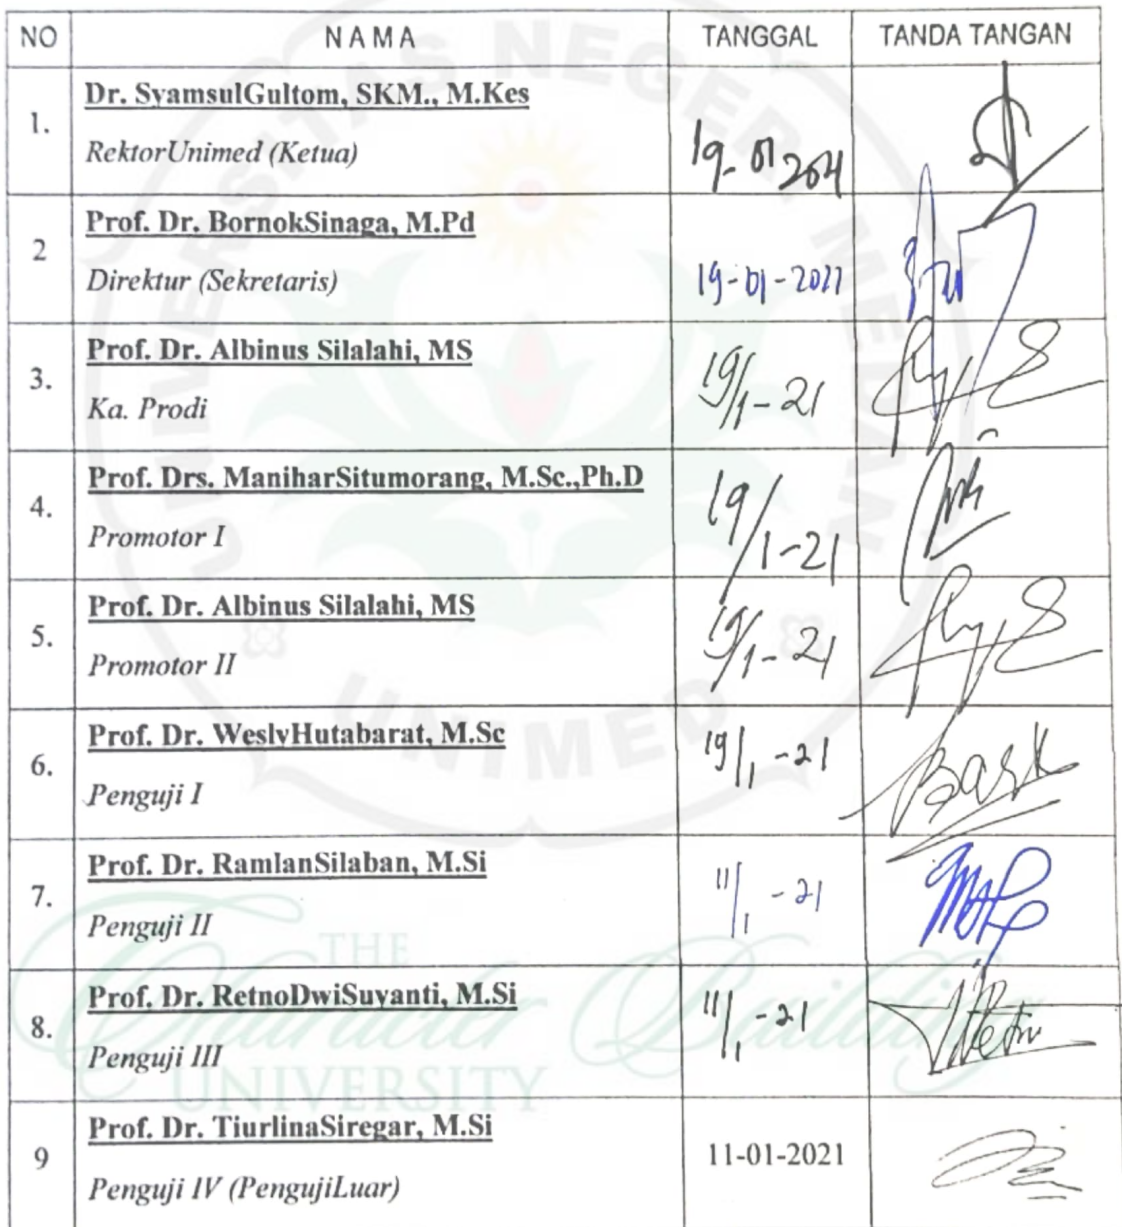 NO NAMA TANGGAL TANDA TANGAN
1. Dr. SyamsulGultom, SKM., M.Kes
RektorUnimed (Ketua) 19-01 2021
2 Prof. Dr. BornokSinaga, M.Pd
Direktur (Sekretaris) 19-01-2021
3. Prof. Dr. Albinus Silalahi, MS
Ka. Prodi 19/1-21
4. Prof. Drs. ManiharSitumorang, M.Sc.,Ph.D
Promotor I 19/1-21
5. Prof. Dr. Albinus Silalahi, MS
Promotor II 19/1-21
6. Prof. Dr. WeslyHutabarat, M.Sc
Penguji I 19/1-21
7. Prof. Dr. RamlanSilaban, M.Si
Penguji II 11/1-21
8. Prof. Dr. RetnoDwiSuyanti, M.Si
Penguji III 11/1-21
9 Prof. Dr. TiurlinaSiregar, M.Si
Penguji IV (PengujiLuar) 11-01-2021
UNIVERSITAS NEGERI MEDAN
UNIMED
THE
Character Building
UNIVERSITY